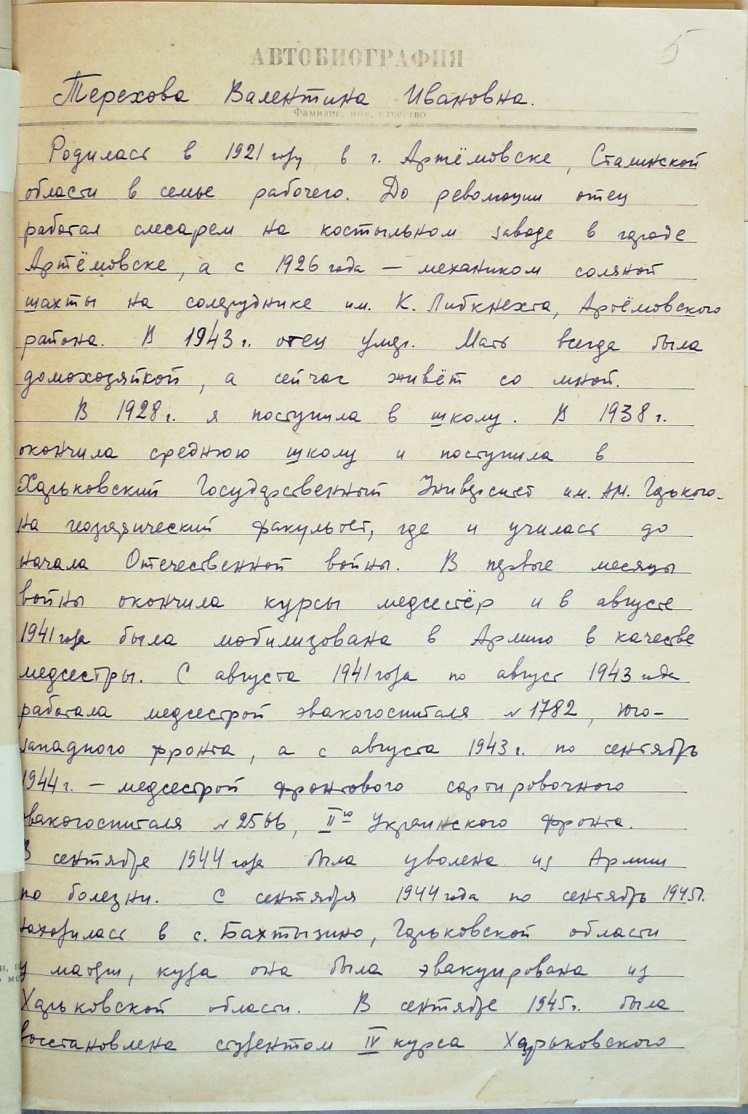 5
АВТОБИОГРАФИЯ
Терехова Валентина Ивановна.
Фамилия, имя, отчество
Родилась в 1921 году в г. Артёмовске, Сталинской
области в семье рабочего. До революции отец
работал слесарем на костыльном заводе в городе
Артёмовске, а с 1926 года — механиком соляной
шахты на солеруднике им. К. Либкнехта, Артёмовского
района. В 1943 г. отец умер. Мать всегда была
домохозяйкой, а сейчас живёт со мной.
В 1928 г. я поступила в школу. В 1938 г.
окончила среднюю школу и поступила в
Харьковский Государственный Университет им. А.М. Горького
на географический факультет, где и училась до
начала Отечественной войны. В первые месяцы
войны окончила курсы медсестёр и в августе
1941 года была мобилизована в Армию в качестве
медсестры. С августа 1941 года по август 1943 года
работала медсестрой эвакогоспиталя № 1782, Юго-
западного фронта, а с августа 1943 г. по сентябрь
1944 г. — медсестрой фронтового сортировочного
эвакогоспиталя № 2566, II го Украинского фронта.
В сентябре 1944 года была уволена из Армии
по болезни. С сентября 1944 года по сентябрь 1945 г.
находилась в с. Бахтызино, Горьковской области
у матери, куда она была эвакуирована из
Харьковской области. В сентябре 1945 г. была
восстановлена студентом IV курса Харьковского